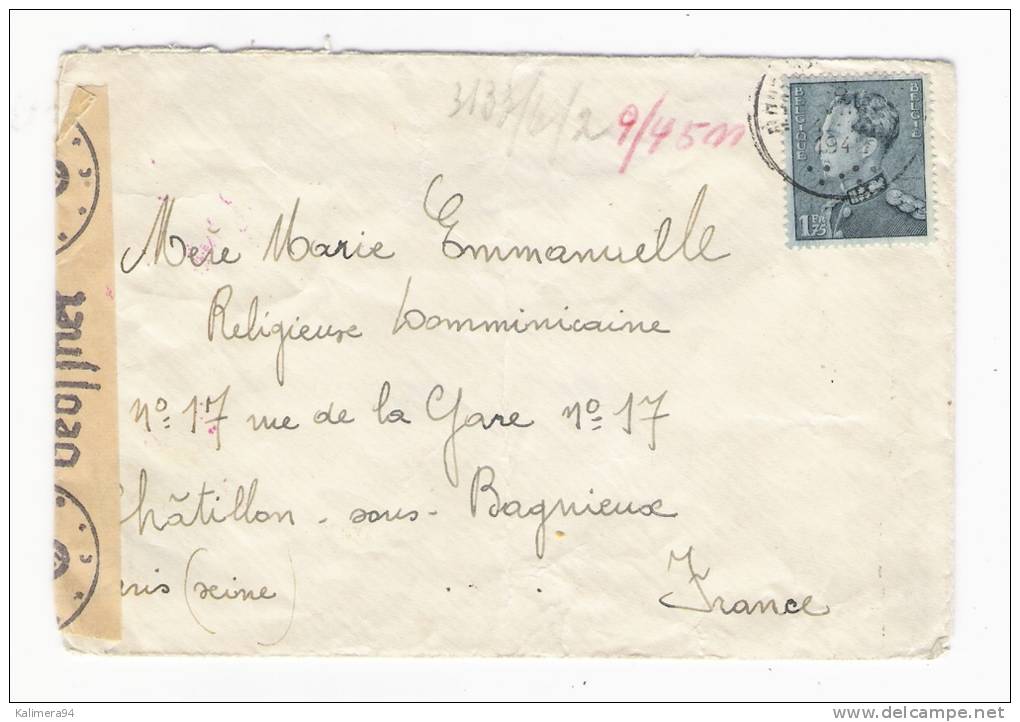 3133/6/2 9/45
BELGIQUE BELGIË
194
1FR75
Geöffnet
c
c
Mère Marie Emmanuelle
Religieuse Domminicaine
Nº 17 rue de la Gare Nº 17
Châtillon - sous - Bagnieux
(seine)
France
Kalimera94